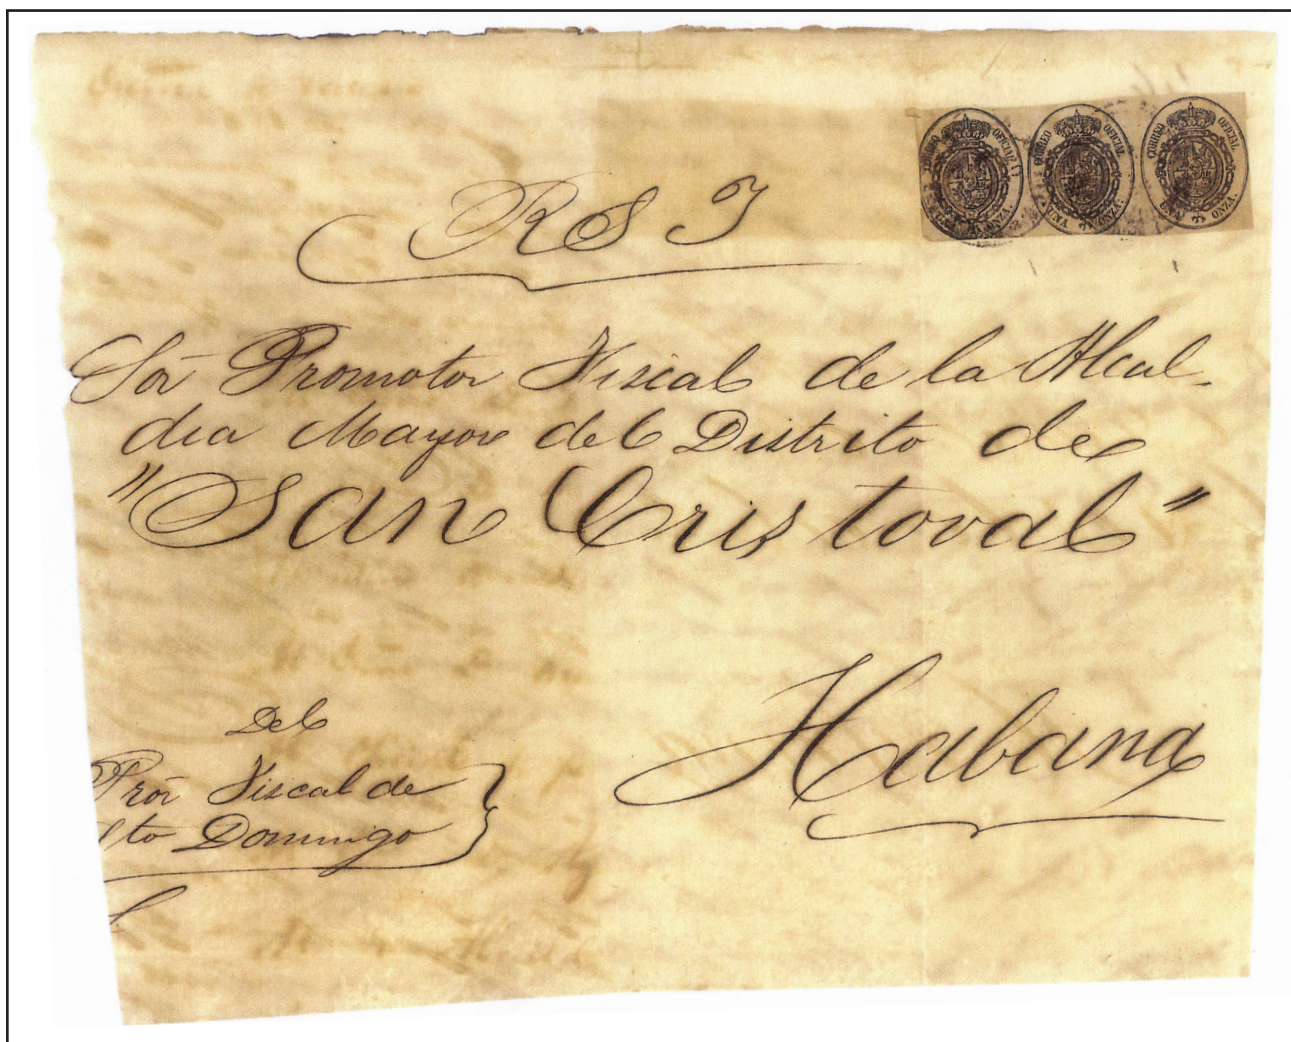 CORREO OFICIAL
UNA ONZA.
CORREO OFICIAL
UNA ONZA.
CORREO OFICIAL
UNA ONZA.
R S I
Sor Promotor Fiscal de la Alcal-
dia Mayor del Distrito de
"San Cristoval"
Habana
Del
Pror Fiscal de
Sto Domingo